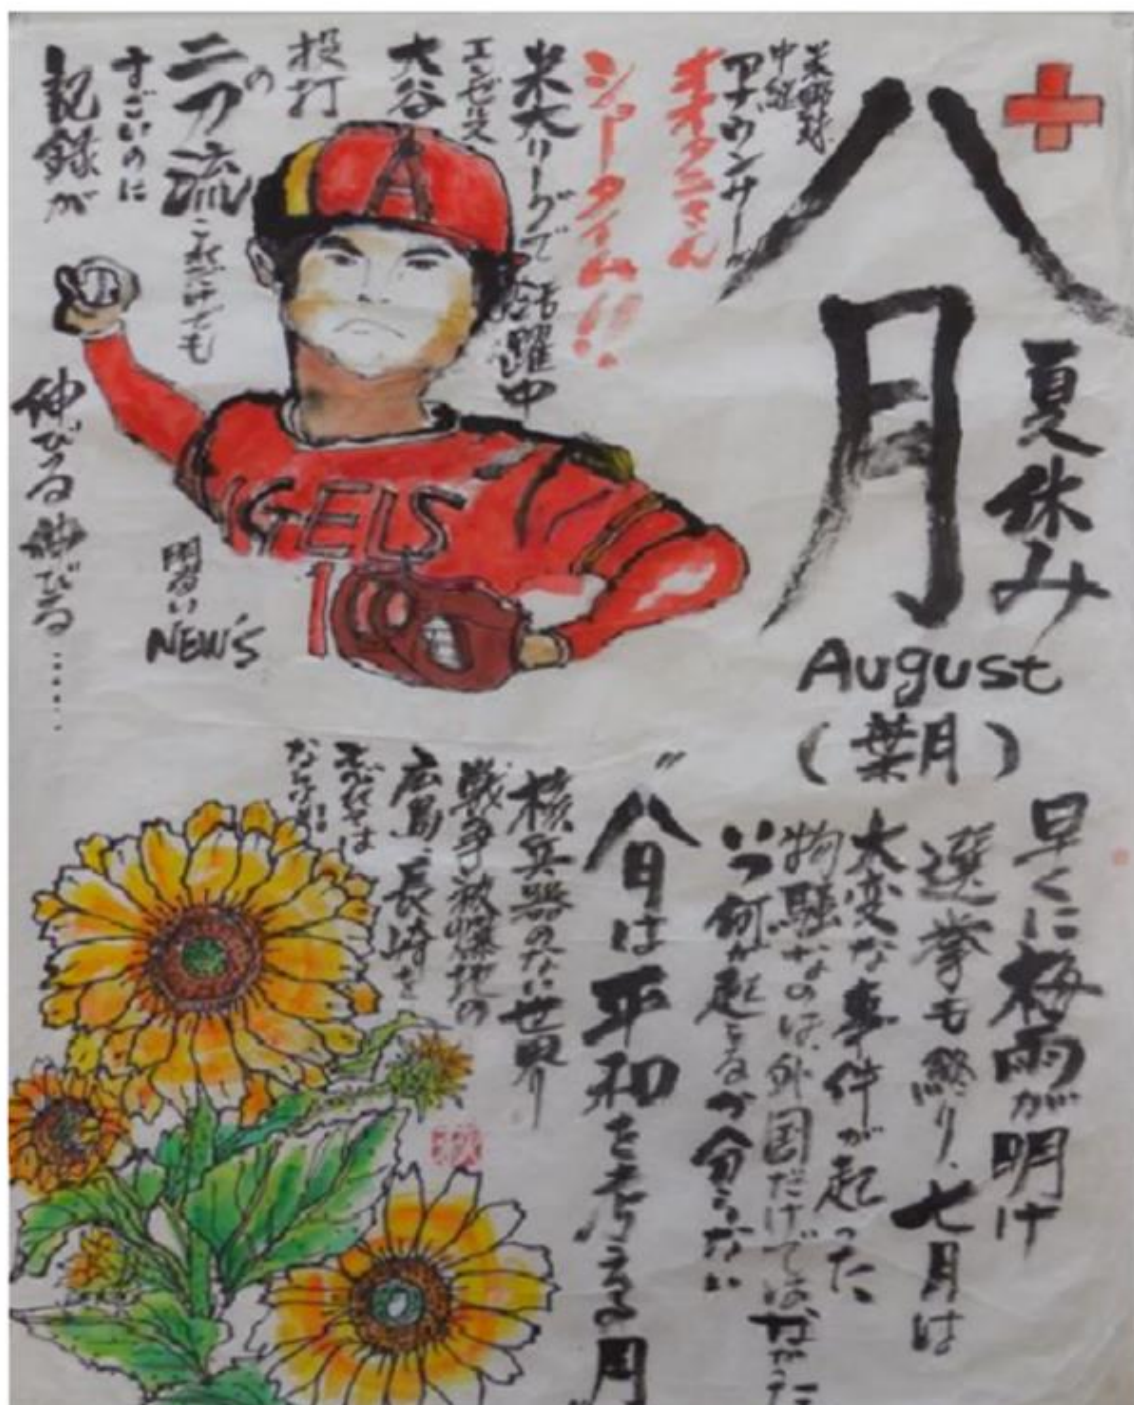 八月
夏休み
August
(葉月)
米野球
中継
アナウンサーが
オオタニさん
シャータイム!!
米大リーグで活躍中
エンゼルス
大谷
投打
の
二刀流これだけでも
すごいのに
記録が
伸びる伸びる……
A
NGELS
1
明るい
NEW'S
早くに梅雨が明け
選挙も終り、七月は
大変な事件が起った
物騒なのは外国だけではなかった
いつ何が起こるか分らない
"八月は平和を考える月"
核兵器のない世界
戦争被爆地の
広島、長崎を